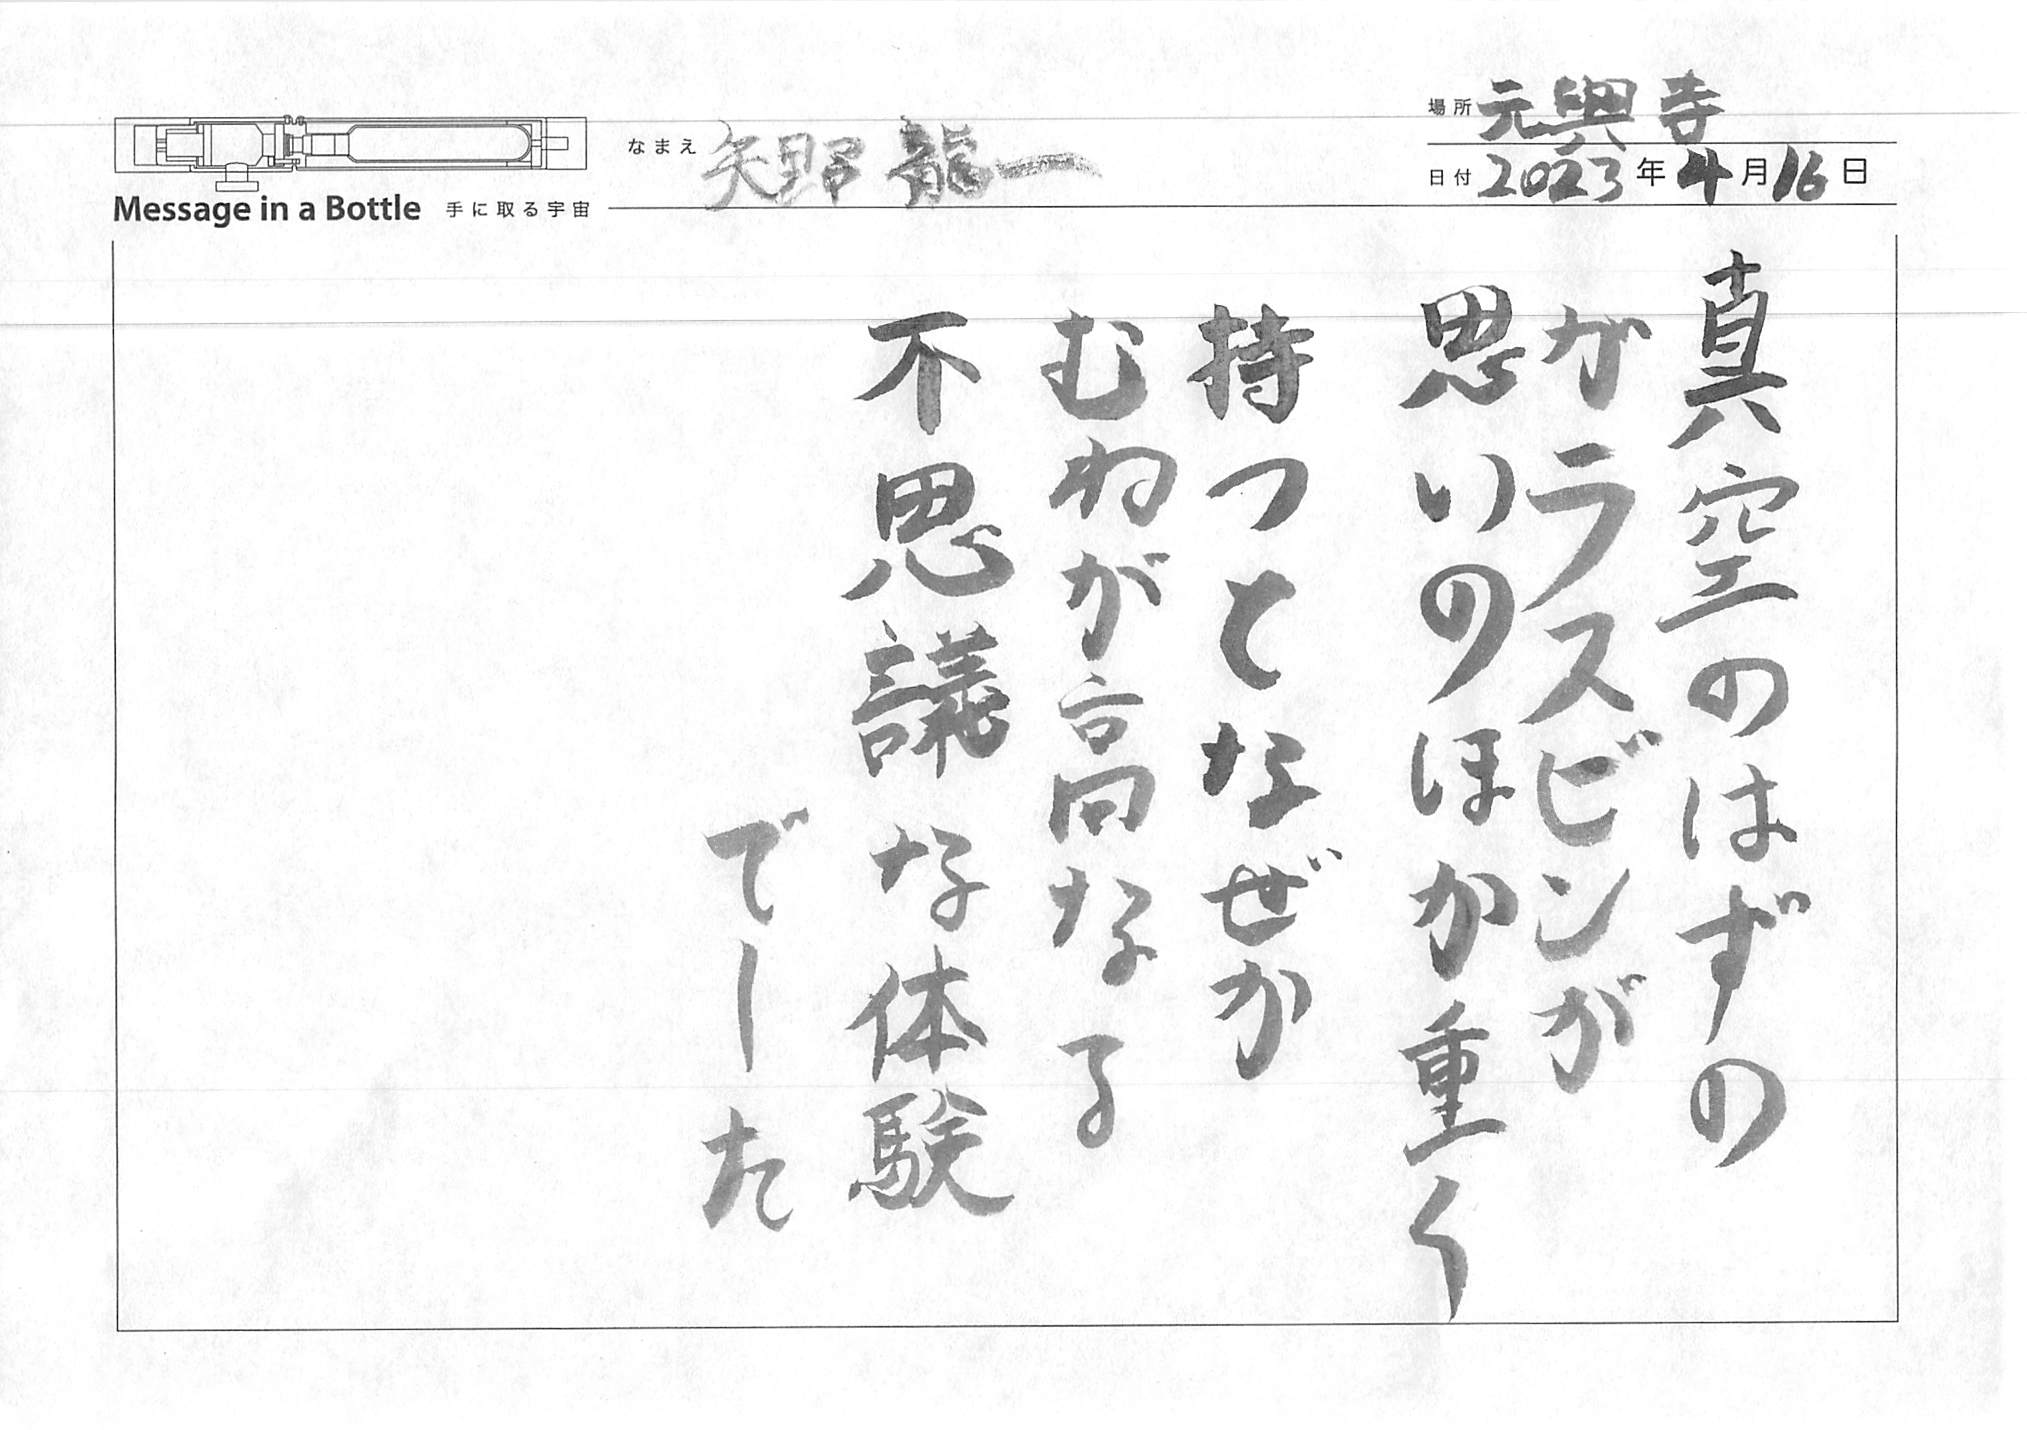 場所 元興寺
なまえ 矢野龍一
日付 2023年4月16日
Message in a Bottle 手に取る宇宙
真空のはずの
ガラスビンが
思いのほか重く
持つとなぜか
むねが高なる
不思議な体験
でした